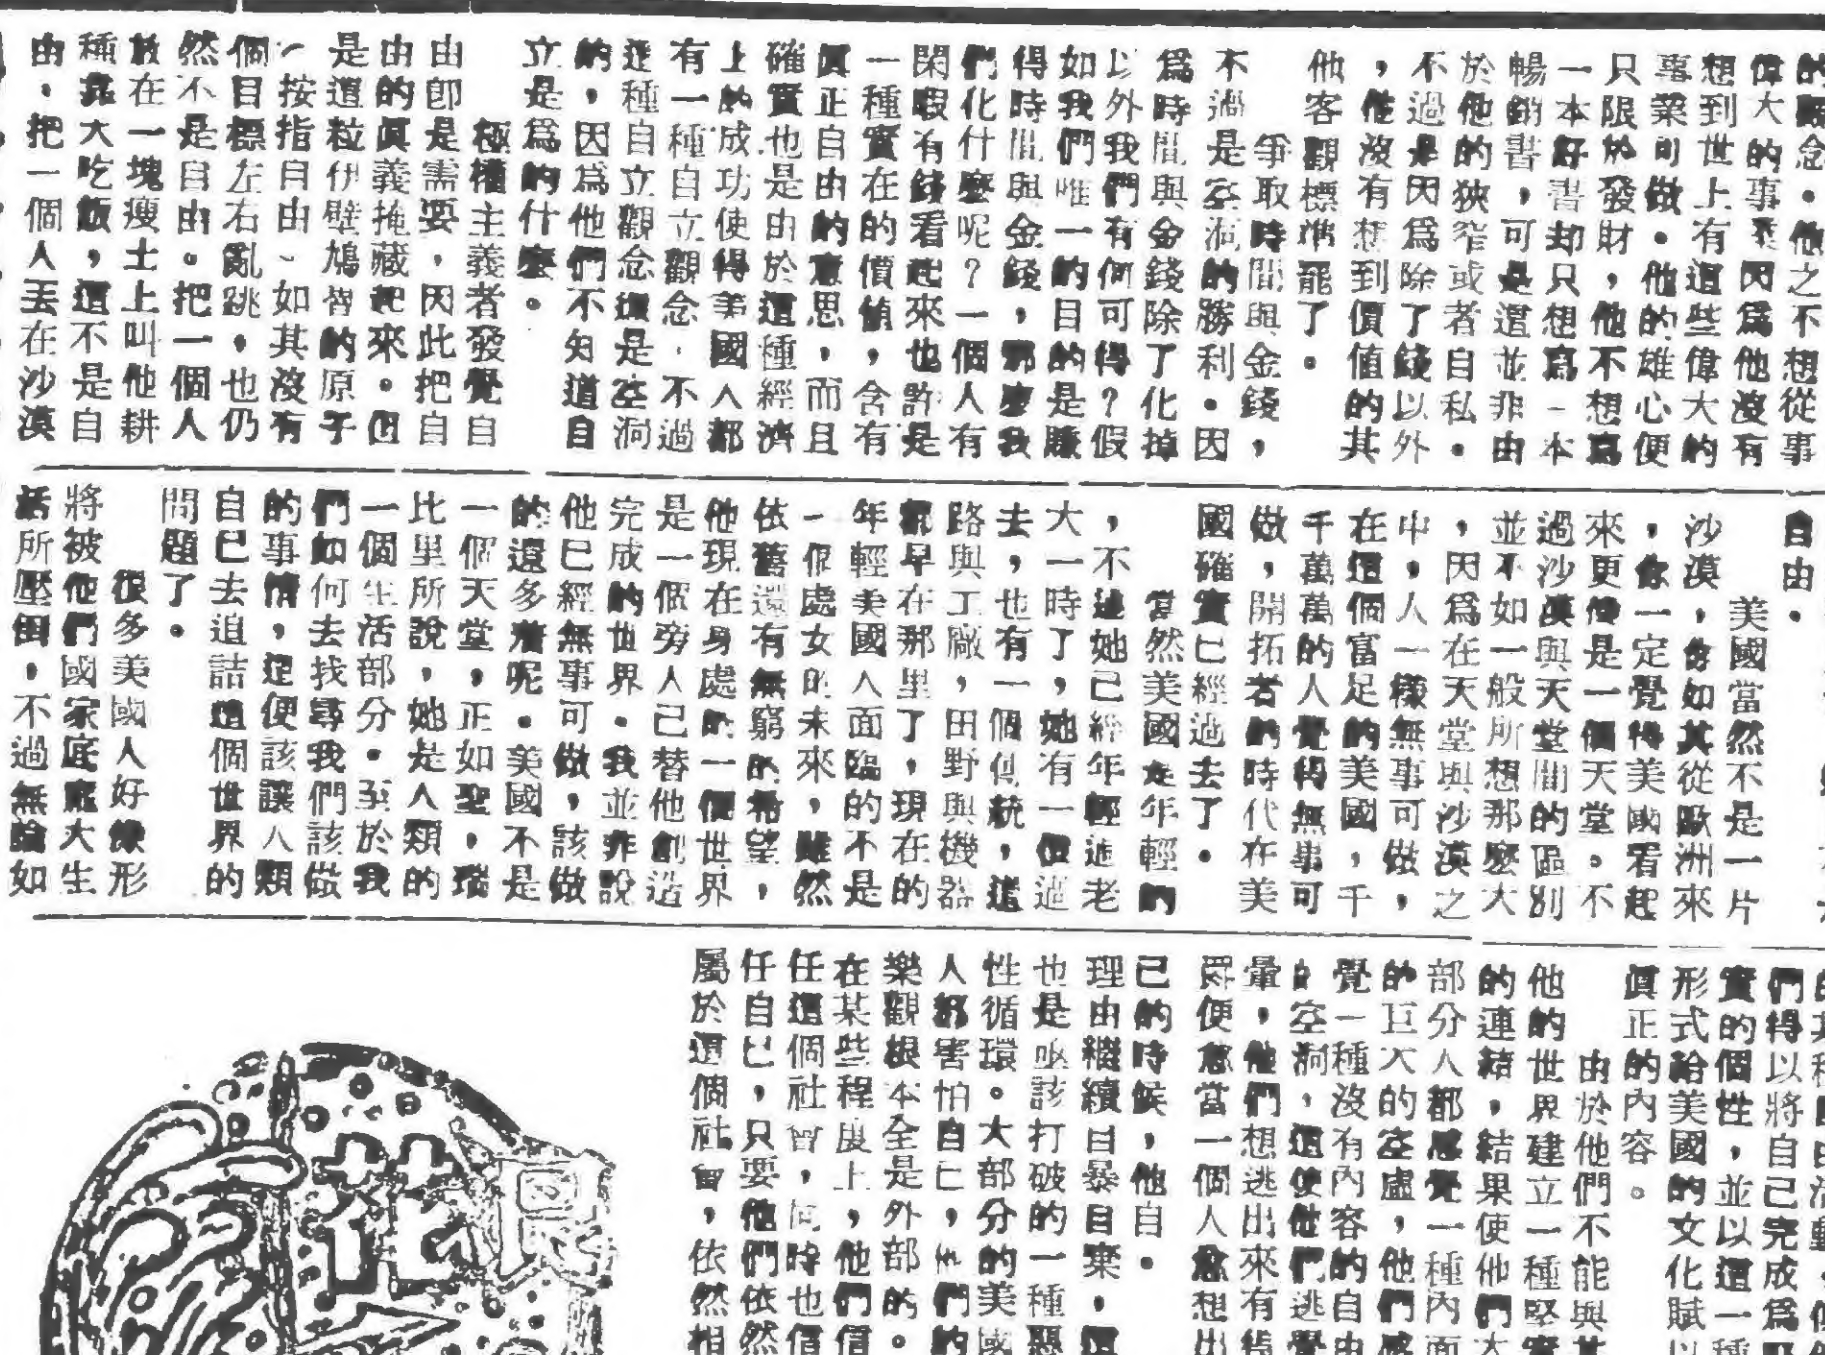 的觀念。他之不想從事
偉大的事業因為他沒有
想到世上有這些偉大的
事業可做。他的雄心便
只限於發財，他不想寫
一本好書却只想寫一本
暢銷書，可是這並非由
於他的狹窄或者自私。
不過是因爲除了錢以外
，他沒有想到價值的其
他客觀標準罷了。
爭取時間與金錢，
不過是空洞的勝利。因
爲時間與金錢除了化掉
以外我們有何可得？假
如我們唯一的目的是賺
得時間與金錢，那麽我
們化什麽呢？一個人有
閑暇有錢看起來也許是
一種實在的價値，含有
眞正自由的意思，而且
確實也是由於這種經濟
上的成功使得美國人都
有一種自立觀念。不過
這種自立觀念還是空洞
的，因爲他們不知道自
立是爲的什麽。
極權主義者發覺自
由卽是需要，因此把自
由的眞義掩藏起來。但
是這粒伊壁鳩魯的原子
（按指自由）如其沒有
個目標左右亂跳，也仍
然不是自由。把一個人
放在一塊瘦土上叫他耕
種靠大吃飯，這不是自
由，把一個人丟在沙漠
自由。
美國當然不是一片
沙漠，你如其從歐洲來
，你一定覺得美國看起
來更像是一個天堂。不
過沙漠與天堂間的區別
並不如一般所想那麽大
，因爲在天堂與沙漠之
中，人一樣無事可做，
在這個富足的美國，千
千萬萬的人覺得無事可
做，開拓者的時代在美
國確實已經過去了。
當然美國是年輕的
，不過她已經年輕過老
大一時了，她有一個過
去，也有一個傳統，這
路與工廠，田野與機器
都早在那里了，現在的
年輕美國人面臨的不是
一個處女的未來，雖然
依舊還有無窮的希望，
他現在身處的一個世界
是一個旁人已替他創造
完成的世界。我並非說
他已經無事可做，該做
的還多着呢。美國不是
一個天堂，正如聖，瑞
比里所說，她是人類的
一個生活部分。至於我
們如何去找尋我們該做
的事情，這便該讓人類
自已去追詰這個世界的
問題了。
很多美國人好像形
將被他們國家底龐大生
活所壓倒，不過無論如
們得以將自己完成爲
實的個性，並以這一種
形式給美國的文化賦以
眞正的內容。
由於他們不能與其
他的世界建立一種堅實
的連結，結果使他們大
部分人都感覺一種內面
的巨大的空虛，他們感
覺一種沒有內容的自由
的空洞，這使他們逃覺
暈，他們想逃出來有時
畀便愈當一個人愈想出
已的時候，他自。
理由繼續自暴自棄。這
也是亟該打破的一種惡
性循環。大部分的美國
人都害怕自已，他們的
樂觀根本全是外部的。
在某些程度上，他們信
任這個社會，同時也信
任自已，只要他們依然
屬於這個社會，依然相